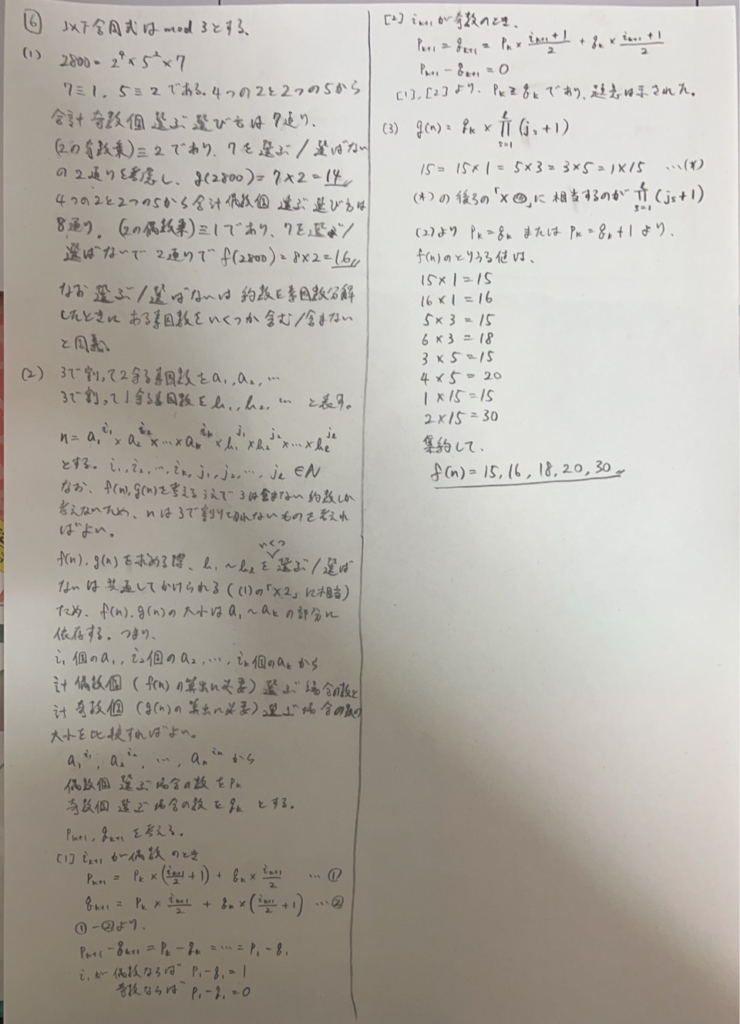 6 以下合同式は mod 3とする。
(1) 2800 = 2⁴ × 5² × 7
7≡1, 5≡2 である。4つの2と2つの5から
合計奇数個 選ぶ選び方は 7通り。
(2の奇数乗)≡2であり、7を選ぶ/選ばない
の2通りを考慮し、g(2800) = 7×2 = 14
4つの2と2つの5から合計偶数個 選ぶ選び方は
8通り。(2の偶数乗)≡1であり、7を選ぶ/
選ばないで 2通りで f(2800) = 8×2 = 16
なお 選ぶ/選ばないは 約数を素因数分解
したときに ある素因数をいくつか含む/含まない
と同義。
(2) 3で割って2余る素因数を a₁, a₂, …
3で割って1余る素因数を b₁, b₂, … と表す。
n = a₁^i₁ × a₂^i₂ × … × a_k^i_k × b₁^j₁ × b₂^j₂ × … × b_ℓ^j_ℓ
とする。i₁, i₂, …, i_k, j₁, j₂, …, j_ℓ ∈ N
なお、f(n), g(n)を考えるうえで 3は含まない 約数しか
考えないため、nは3で割りきれないものを考えれ
ばよい。
f(n), g(n)を求める際、b₁ ~ b_ℓ を いくつ 選ぶ/選ば
ないは 共通してかけられる ((1)の「×2」に相当)
ため、f(n), g(n)の大小は a₁ ~ a_k の部分に
依存する。つまり、
i₁個のa₁, i₂個のa₂, …, i_k個のa_kから
計 偶数個 (f(n)の算出に必要) 選ぶ場合の数と
計 奇数個 (g(n)の算出に必要) 選ぶ場合の数の
大小を比較すればよい。
a₁^i₁, a₂^i₂, …, a_k^i_k から
偶数個 選ぶ場合の数を p_k
奇数個 選ぶ場合の数を q_k とする。
p_k+1, q_k+1 を考える。
[1] i_k+1 が偶数のとき
p_k+1 = p_k × (i_k+1/2 + 1) + q_k × i_k+1/2 … ①
q_k+1 = p_k × i_k+1/2 + q_k × (i_k+1/2 + 1) … ②
①-②より、
p_k+1 - q_k+1 = p_k - q_k = … = p₁ - q₁
i₁が 偶数ならば p₁ - q₁ = 1
奇数ならば p₁ - q₁ = 0
[2] i_k+1 が奇数のとき、
p_k+1 = q_k+1 = p_k × (i_k+1 + 1)/2 + q_k × (i_k+1 + 1)/2
p_k+1 - q_k+1 = 0
[1], [2]より、p_k ≧ q_k であり、題意は示された。
(3) g(n) = q_k × ∏_{s=1}^{ℓ} (j_s + 1)
15 = 15×1 = 5×3 = 3×5 = 1×15 …(*)
(*)の後ろの「×◯」に相当するのが ∏_{s=1}^{ℓ} (j_s + 1)
(2)より p_k = q_k または p_k = q_k + 1 より、
f(n)のとりうる値は、
15 × 1 = 15
16 × 1 = 16
5 × 3 = 15
6 × 3 = 18
3 × 5 = 15
4 × 5 = 20
1 × 15 = 15
2 × 15 = 30
集約して、
f(n) = 15, 16, 18, 20, 30